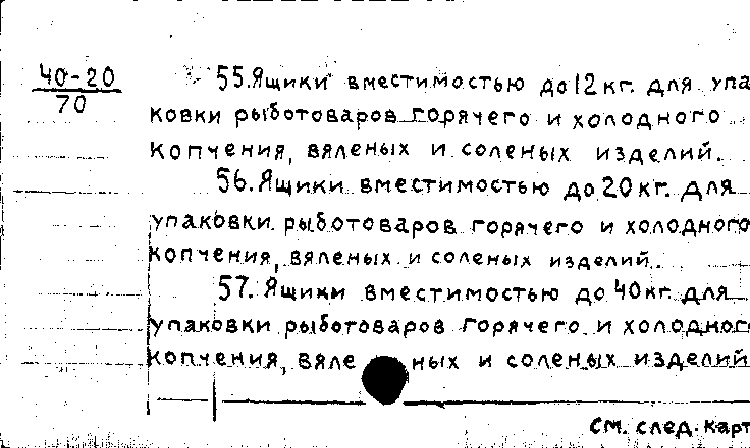 40-20
70
55. Ящики вместимостью до 12 кг. для упа
ковки рыботоваров горячего и холодного
копчения, вяленых и соленых изделий.
56. Ящики вместимостью до 20 кг. для
упаковки рыботоваров горячего и холодного
копчения, вяленых и соленых изделий.
57. Ящики вместимостью до 40 кг. для
упаковки рыботоваров горячего и холодног
копчения, вяле ных и соленых изделий
См. след. карт